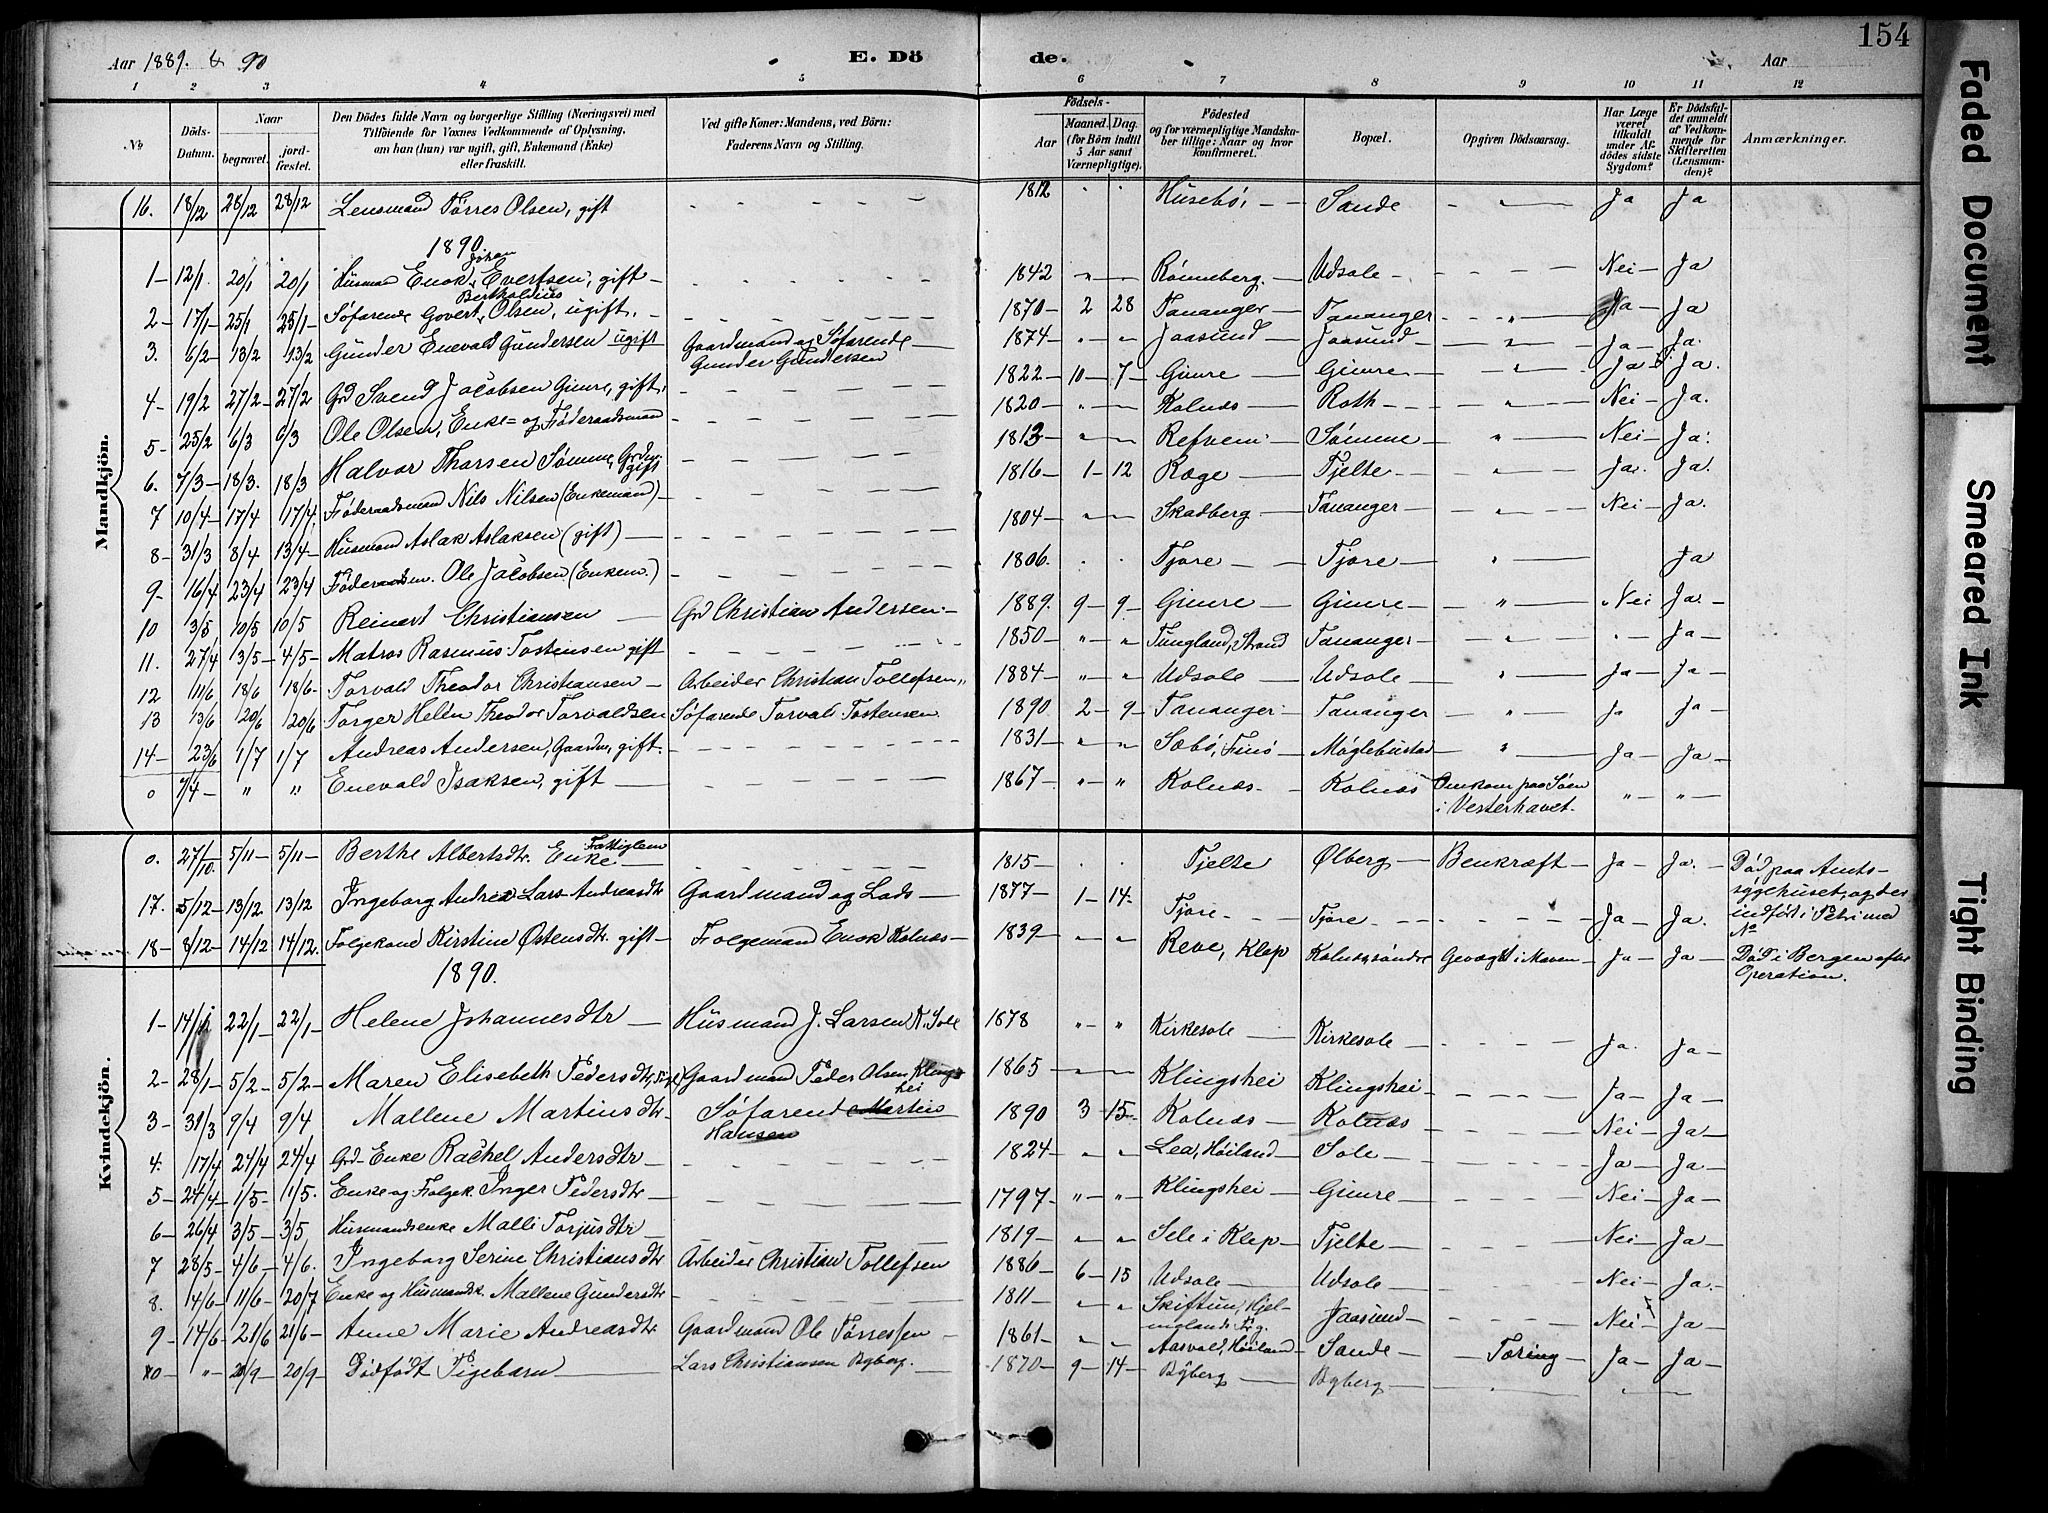 154
Aar 1889. & 90
E. Dö de.
Aar
1 2 3 4 5 6 7 8 9 10 11 12
No
Döds-Datum.
Naar
begravet.
jord-fæstet.
Den Dödes fulde Navn og borgerlige Stilling (Næringsvei) med
Tilföiende for Voxnes Vedkommende af Oplysning,
om han (hun) var ugift, gift, Enkemand (Enke)
eller fraskilt.
Ved gifte Koner: Mandens, ved Börn:
Faderens Navn og Stilling.
Födsels-
Aar
Maaned. Dag.
(for Börn indtil 5 Aar samt Værnepligtige).
Födested
og for værnepligtige Mandska-
ber tillige: Naar og hvor
konfirmeret.
Bopæl.
Opgiven Dödsaarsag.
Har Læge været tilkaldt under Af-dödes sidste Sygdom?
Er Dödsfal-det anmeldt af Vedkom-mende for Skifteretten (Lensman-den)?
Anmærkninger.
Mandkjön.
16. 18/12 28/12 28/12 Lensmand Tørres Olsen, gift 1812 Husebø, Sande Ja Ja
1890.
1 12/1 20/1 20/1 Husmand Enok Johan Evertsen, gift 1842 Rønneberg Udsole Nei Ja
2 17/1 25/1 25/1 Søfarende Govert Bertholdius Olsen, ugift. 1870 2 28 Tananger Tananger Ja Ja
3. 6/2 13/2 13/2 Gunder Enevald Gundersen ugift Gaardmand og Søfarende Gunder Gundersen 1874 Jaasund Jaasund Ja Ja.
4 19/2 27/2 27/2 Grd Svend Jacobsen Gimre, gift. 1822 10 7 Gimre Gimre Ja Ja.
5 25/2 6/3 6/3 Ole Olsen, Enke- og Føderaadsmand 1820 Kolnæs Roth Nei Ja.
6. 7/3 18/3. 18/3 Halvor Tharsen Sømme, gift 1813 Refvem Sømme Nei Ja.
7 10/4 17/4 17/4 Føderaadsmand Nils Nilsen (Enkemand) 1816 1 12 Ræge Tjelte Ja. Ja.
8 31/3 8/4 13/4 Husmand Aslak Aslaksen (gift) 1804 Skadberg Tananger Nei Ja.
9 16/4 23/4 23/4 Føderaadsm. Ole Jacobsen (Enkem.) 1806. Tjore Tjore Ja
10 3/5 10/5 10/5 Reinert Christiansen Grd Christian Andersen 1889. 9 9 Gimre Gimre Nei Ja.
11. 27/4 3/5 4/5 Matros Rasmus Tostensen gift 1850 Tungland, Strand Tananger Ja
12 11/6 18/6 18/6 Torvald Theodor Christiansen Arbeider Christian Tollefsen 1884 Udsole Udsole Ja Ja
13 13/6 20/6 20/6 Torger Helén Theodor Torvaldsen Søfarende Torvald Tostensen 1890 2 9 Tananger Tananger Ja Ja
14 23/6 1/7 1/7 Andreas Andersen, Gaardm, gift. 1831 Sæbø, Finø Møglebustad Ja Ja
0 7/4 " " Enevald Isaksen, gift 1867 Kolnæs Kolnæs Omkom paa Søen i Vesterhavet. " "
Kvindekjön.
0. 27/10 5/11 5/11 Berthe Albertsdtr. Enke Fattiglem 1815 Tjelte Ølberg Benkræft Ja Ja. Død paa Amts-sygehuset, og der indført i Petri med No
17. 5/12 13/12 13/12 Ingeborg Andrea Lars Andreasdtr Gaardmand og Lods 1877 1 14 Tjore Tjore Ja Ja.
18 8/12 14/12 14/12. Folgekone Kirstine Østensdtr. gift Folgemand Enok Kolnæs 1839 Reve, Klep Kolnæs søndre Gevægst i Maven Ja Ja Død i Bergen efter Operation.
1890.
1 14/1 22/1 22/1 Helene Johannesdtr Husmand J. Larsen K. Sole 1878 Kirkesole Kirkesole Ja. Ja
2 28/1 5/2 5/2 Maren Elisebeth Pedersdtr, Gaardmand Peder Olsen Klingshei 1865 Klingshei Klingshei Ja Ja
3 31/3 9/4 9/4 Mallene Martinsdtr Søfarende Martin Hansen 1890 3 15 Kolnæs Kolnæs Nei Ja
4. 17/4 24/4 24/4 Grd-Enke Rachel Andersdtr 1824 Lea, Høiland Sole Ja Ja
5 24/4 1/5 1/5. Enke og Folgek. Inger Pedersdtr 1797 Klingshei Gimre Nei Ja
6 26/4 3/5 3/5 Husmandsenke Malli Torjusdtr 1819 Sele i Klep Tjelte Nei Ja
7 28/5 4/6 4/6. Ingeborg Serine Christiansdtr Arbeider Christian Tollefsen 1886 6 15 Udsole Udsole Nei Ja.
8. 14/6 11/6 20/7 Enke og Husmandsk. Mallene Gundersdtr 1811 Skiftun, Hjel-mglands Prg. Jaasund Nei Ja
9 14/6 21/6 21/6 Anne Marie Andreasdtr Gaardmand Ole Tørressen 1861 Aasvald, Høiland Sande Tæring Ja Ja
10 " 20/9 20/9 Dødfødt Pigebarn Lars Christiansen Byberg. 1870 9 14 Byberg Byberg
Faded Document
Smeared Ink
Tight Binding